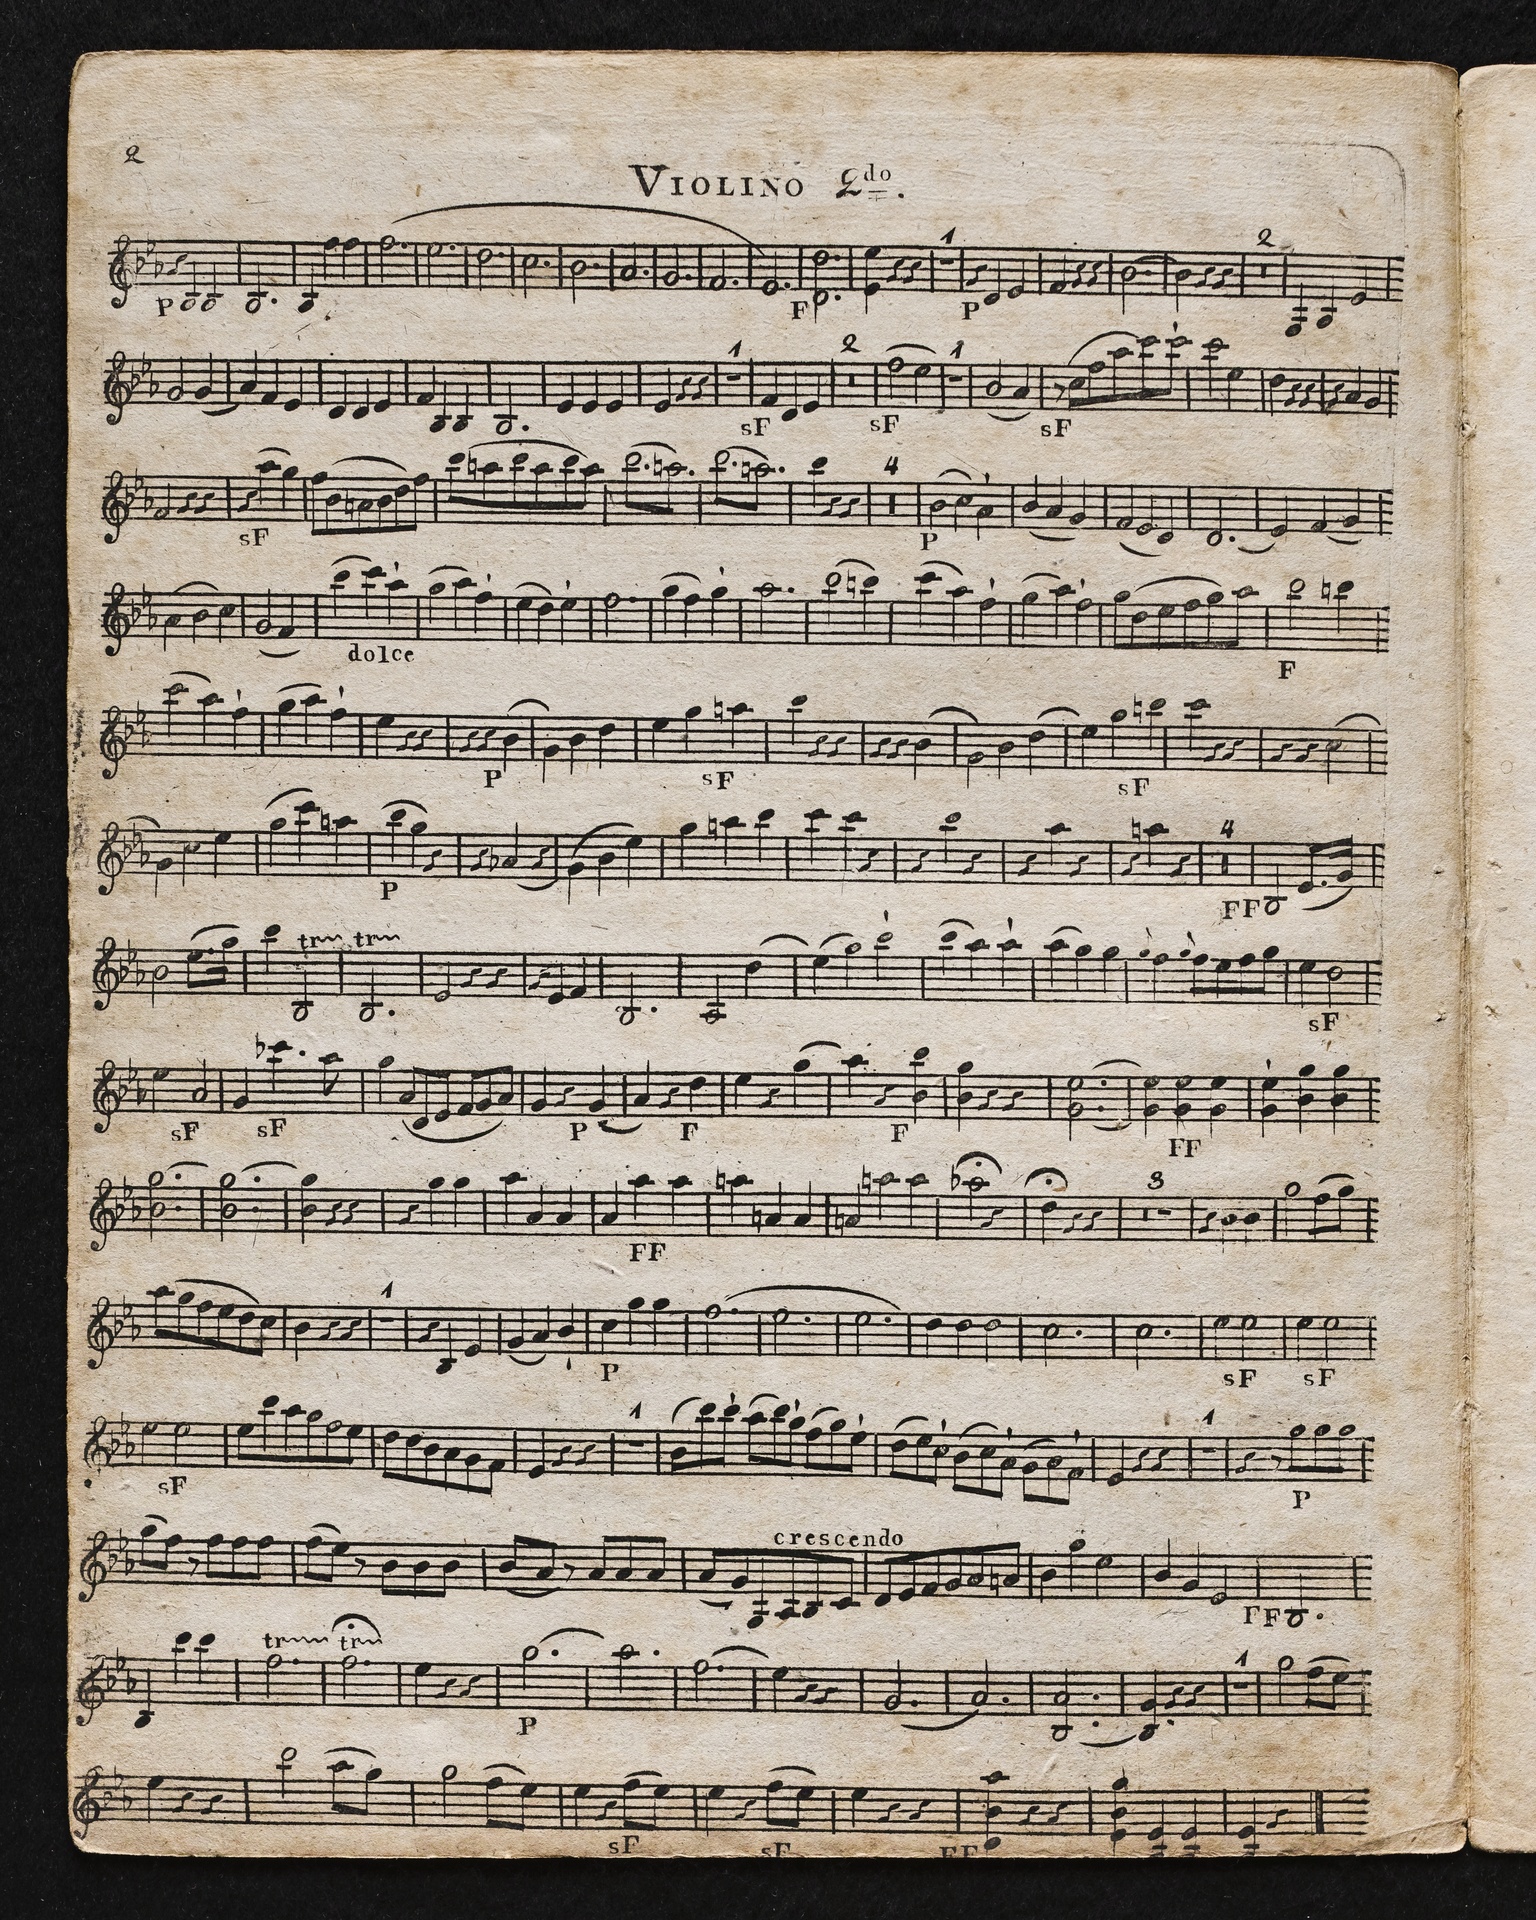 2
VIOLINO 2do.
1 2
P F P
1 2 1
sF sF sF
4
sF P
dolce
F
P sF sF
4
P FF
trm trm
sF
sF sF P F F FF
3
FF
1
P sF sF
1 1
sF P
crescendo
FF
trm trm 1
P
sF sF FF